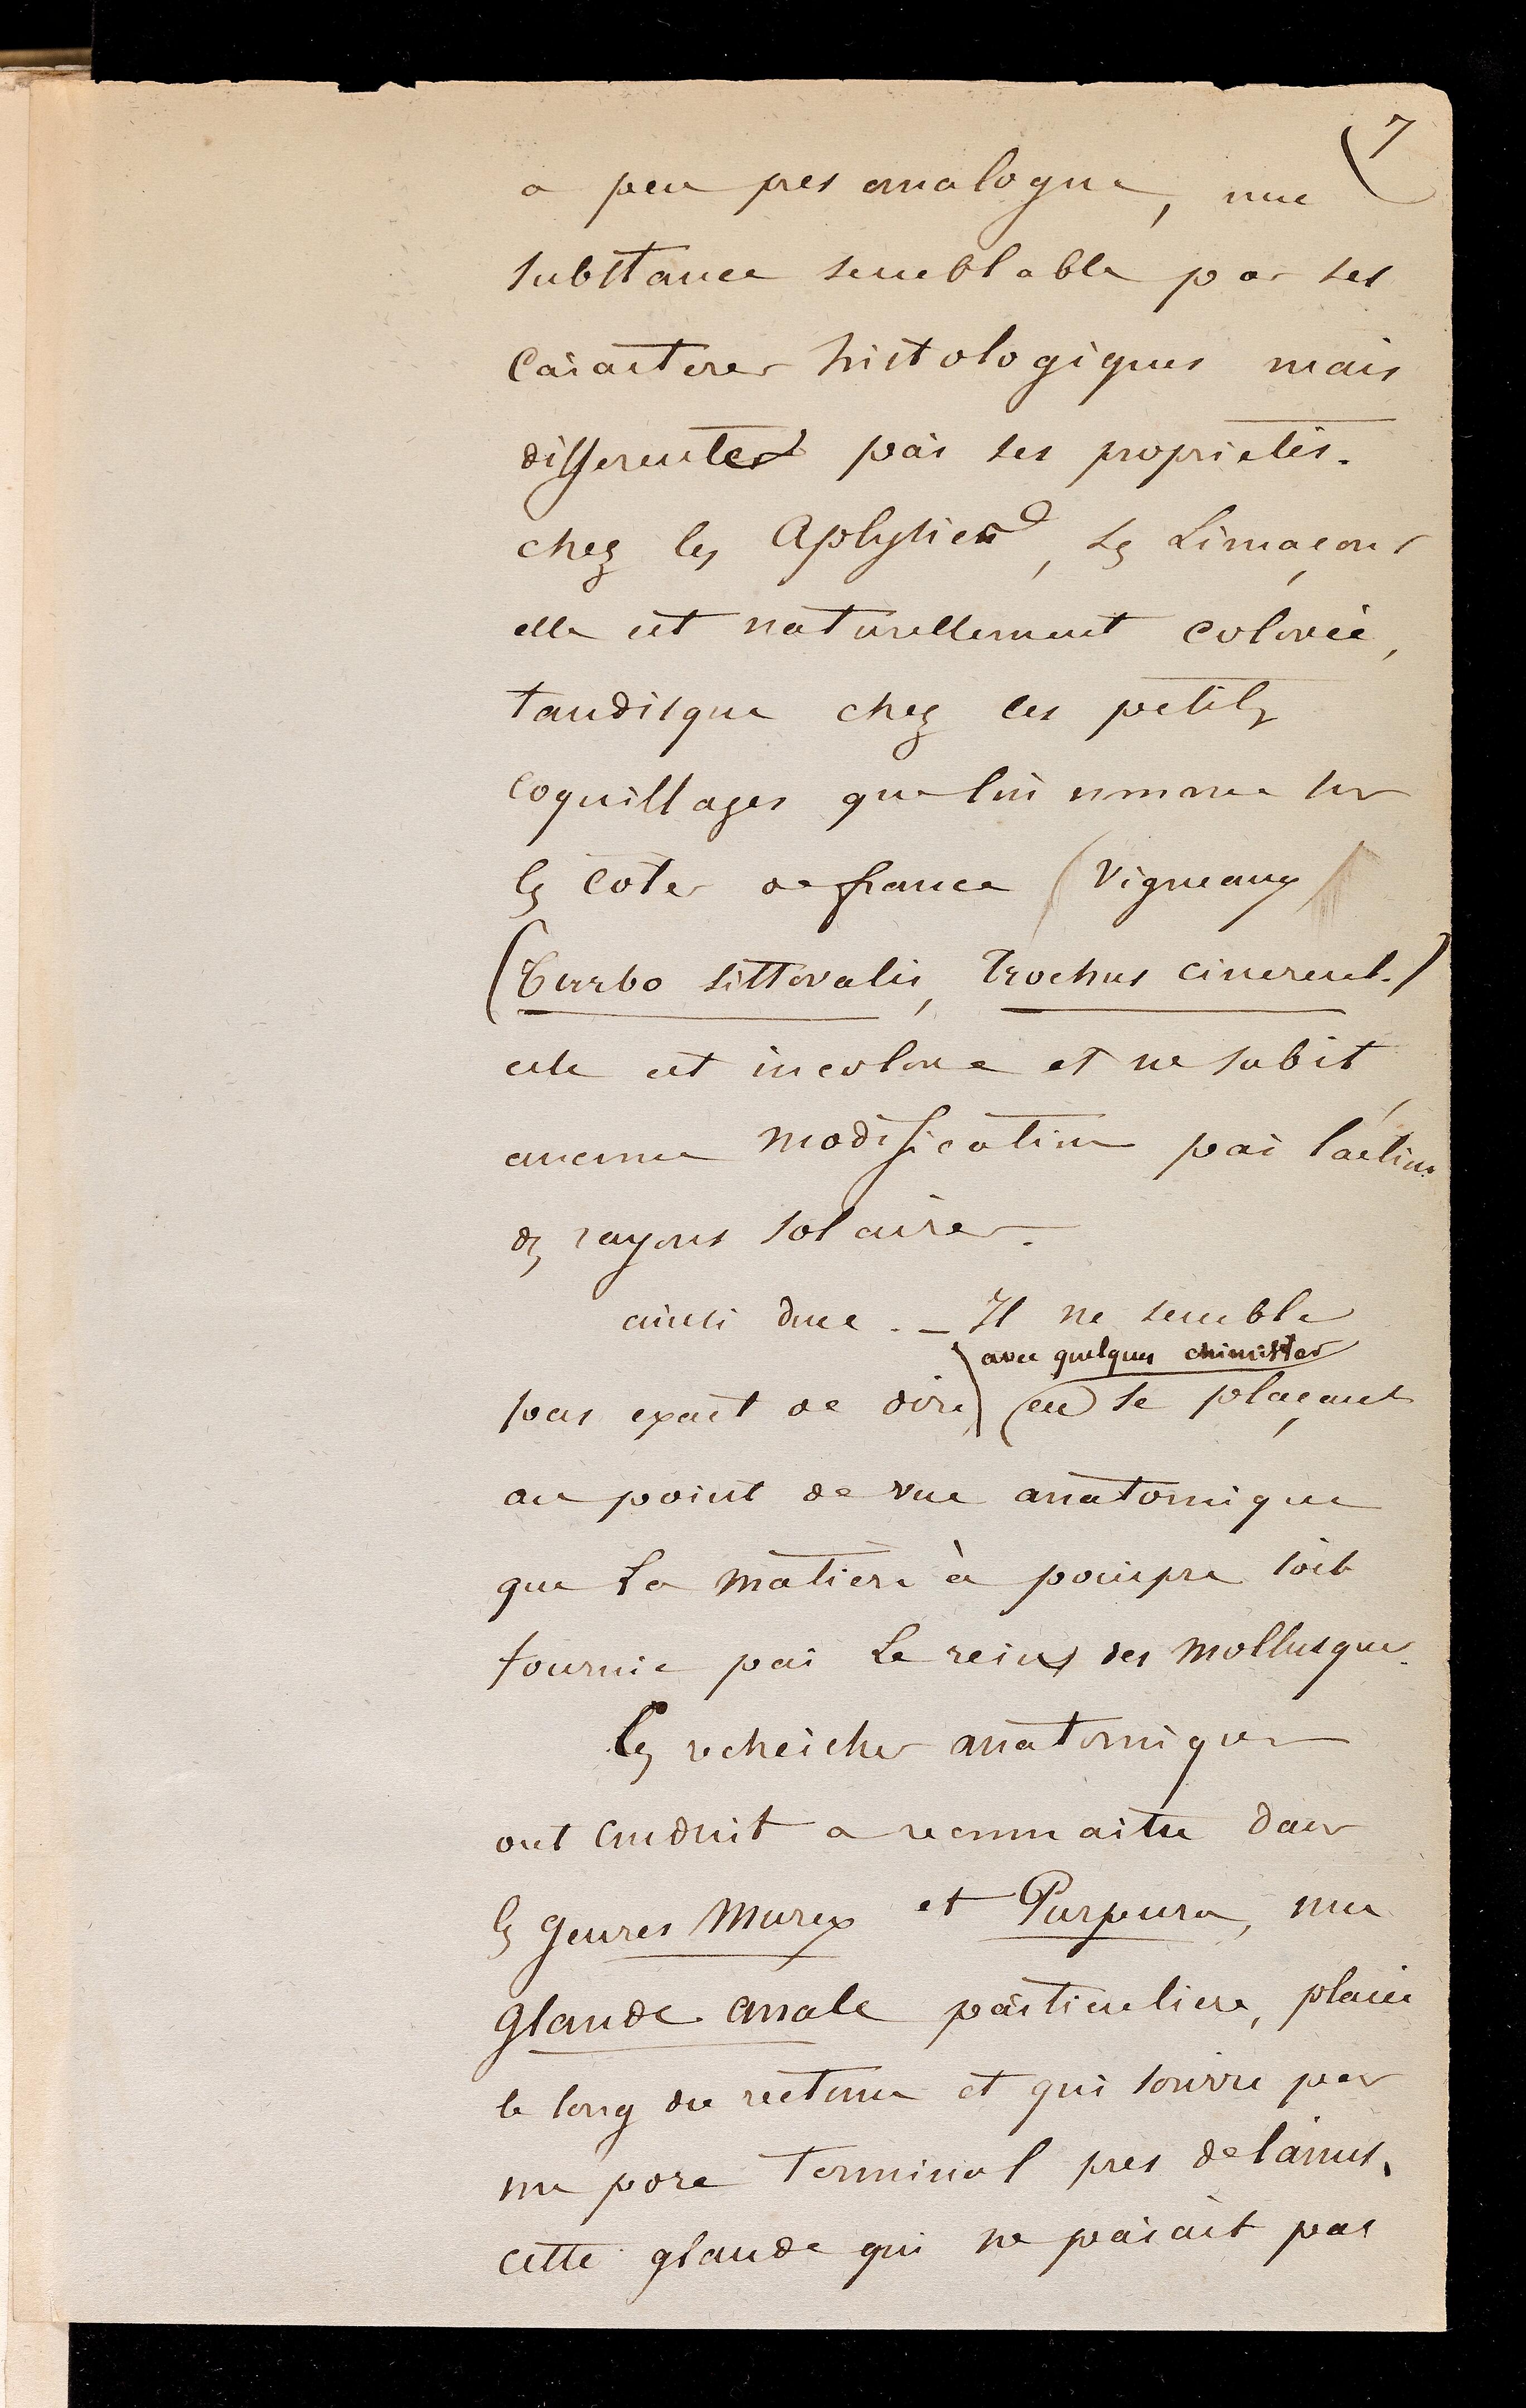 7
a peu pres analogue, une
substance semblable par ses
caracteres histologiques mais
differentes par ses proprietés.
chez les Aplysies, les Limaçons
elle est naturellement colorée,
tandisque chez les petits
coquillages que l'on nomme sur
les cotes de france (Vigneaux)
(Turbo littoralis, Trochus cinereus.)
elle est incolore et ne subit
aucune modification par l'action
des rayons solaires.
ainsi donc. _ Il ne semble
avec quelques chimistes
pas exact de dire) (en se plaçant
au point de vue anatomique
que la matiere à pourpre soit
fournie par le rein des mollusques.
Les recherches anatomiques
ont conduit a reconnaitre dans
les genres Murex et Purpura, une
glande anale particuliere, placée
le long du rectum et qui s'ouvre par
un pore terminal pres de l'anus.
cette glande qui ne parait pas